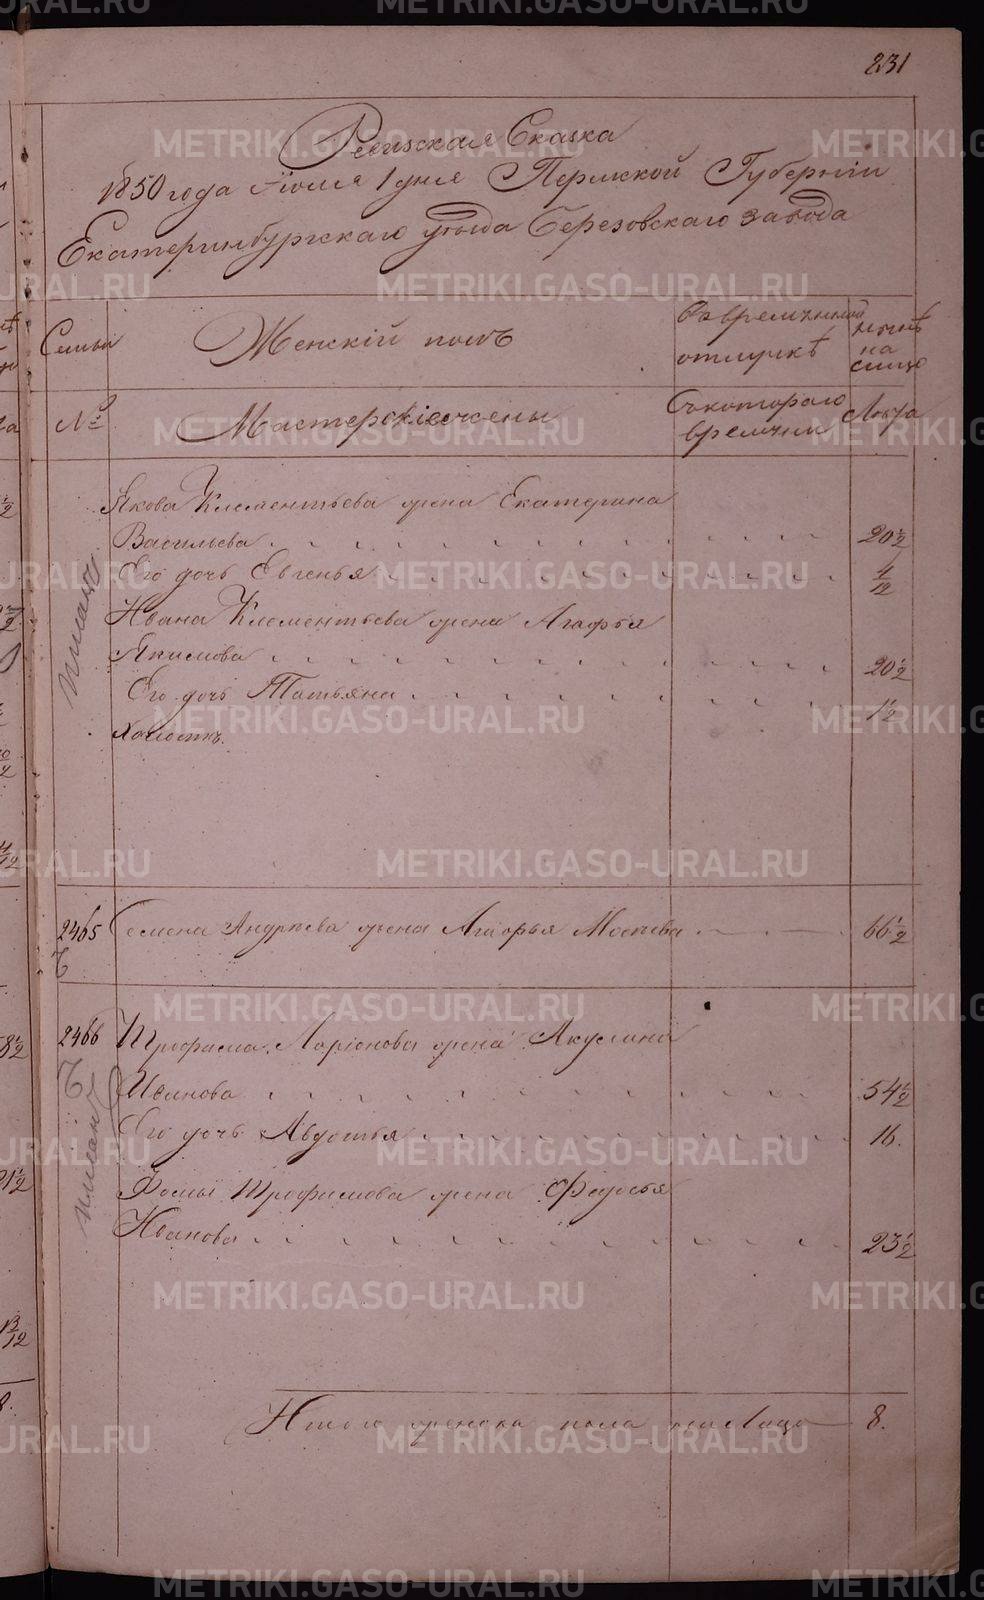 231
Ревизская Сказка
1850 года Июля 1 дня Пермской Губернии
Екатеринбургскаго уезда Березовскаго завода
Семьи
Женский полъ
Во временной
отлучкѣ
нынѣ
на
лицо
№
Мастерские жены
Съ котораго
времени
Лѣта
Якова Клементьева жена Екатерина
Васильева 20 1/2
Его дочь Евгенья
Ивана Клементьева жена Агафья
Якимова 20 1/2
Его дочь Татьяна 1 1/2
2465 Семена Андреева жена Агафья 66 1/2
2466 Трофима Ларионова жена Акулина
Иванова 54 1/2
Его дочь Авдотья 16.
Фомы Трофимова жена Федосья
Иванова 23 1/2
Итого женска пола на Лицо 8.
METRIKI.GASO-URAL.RU